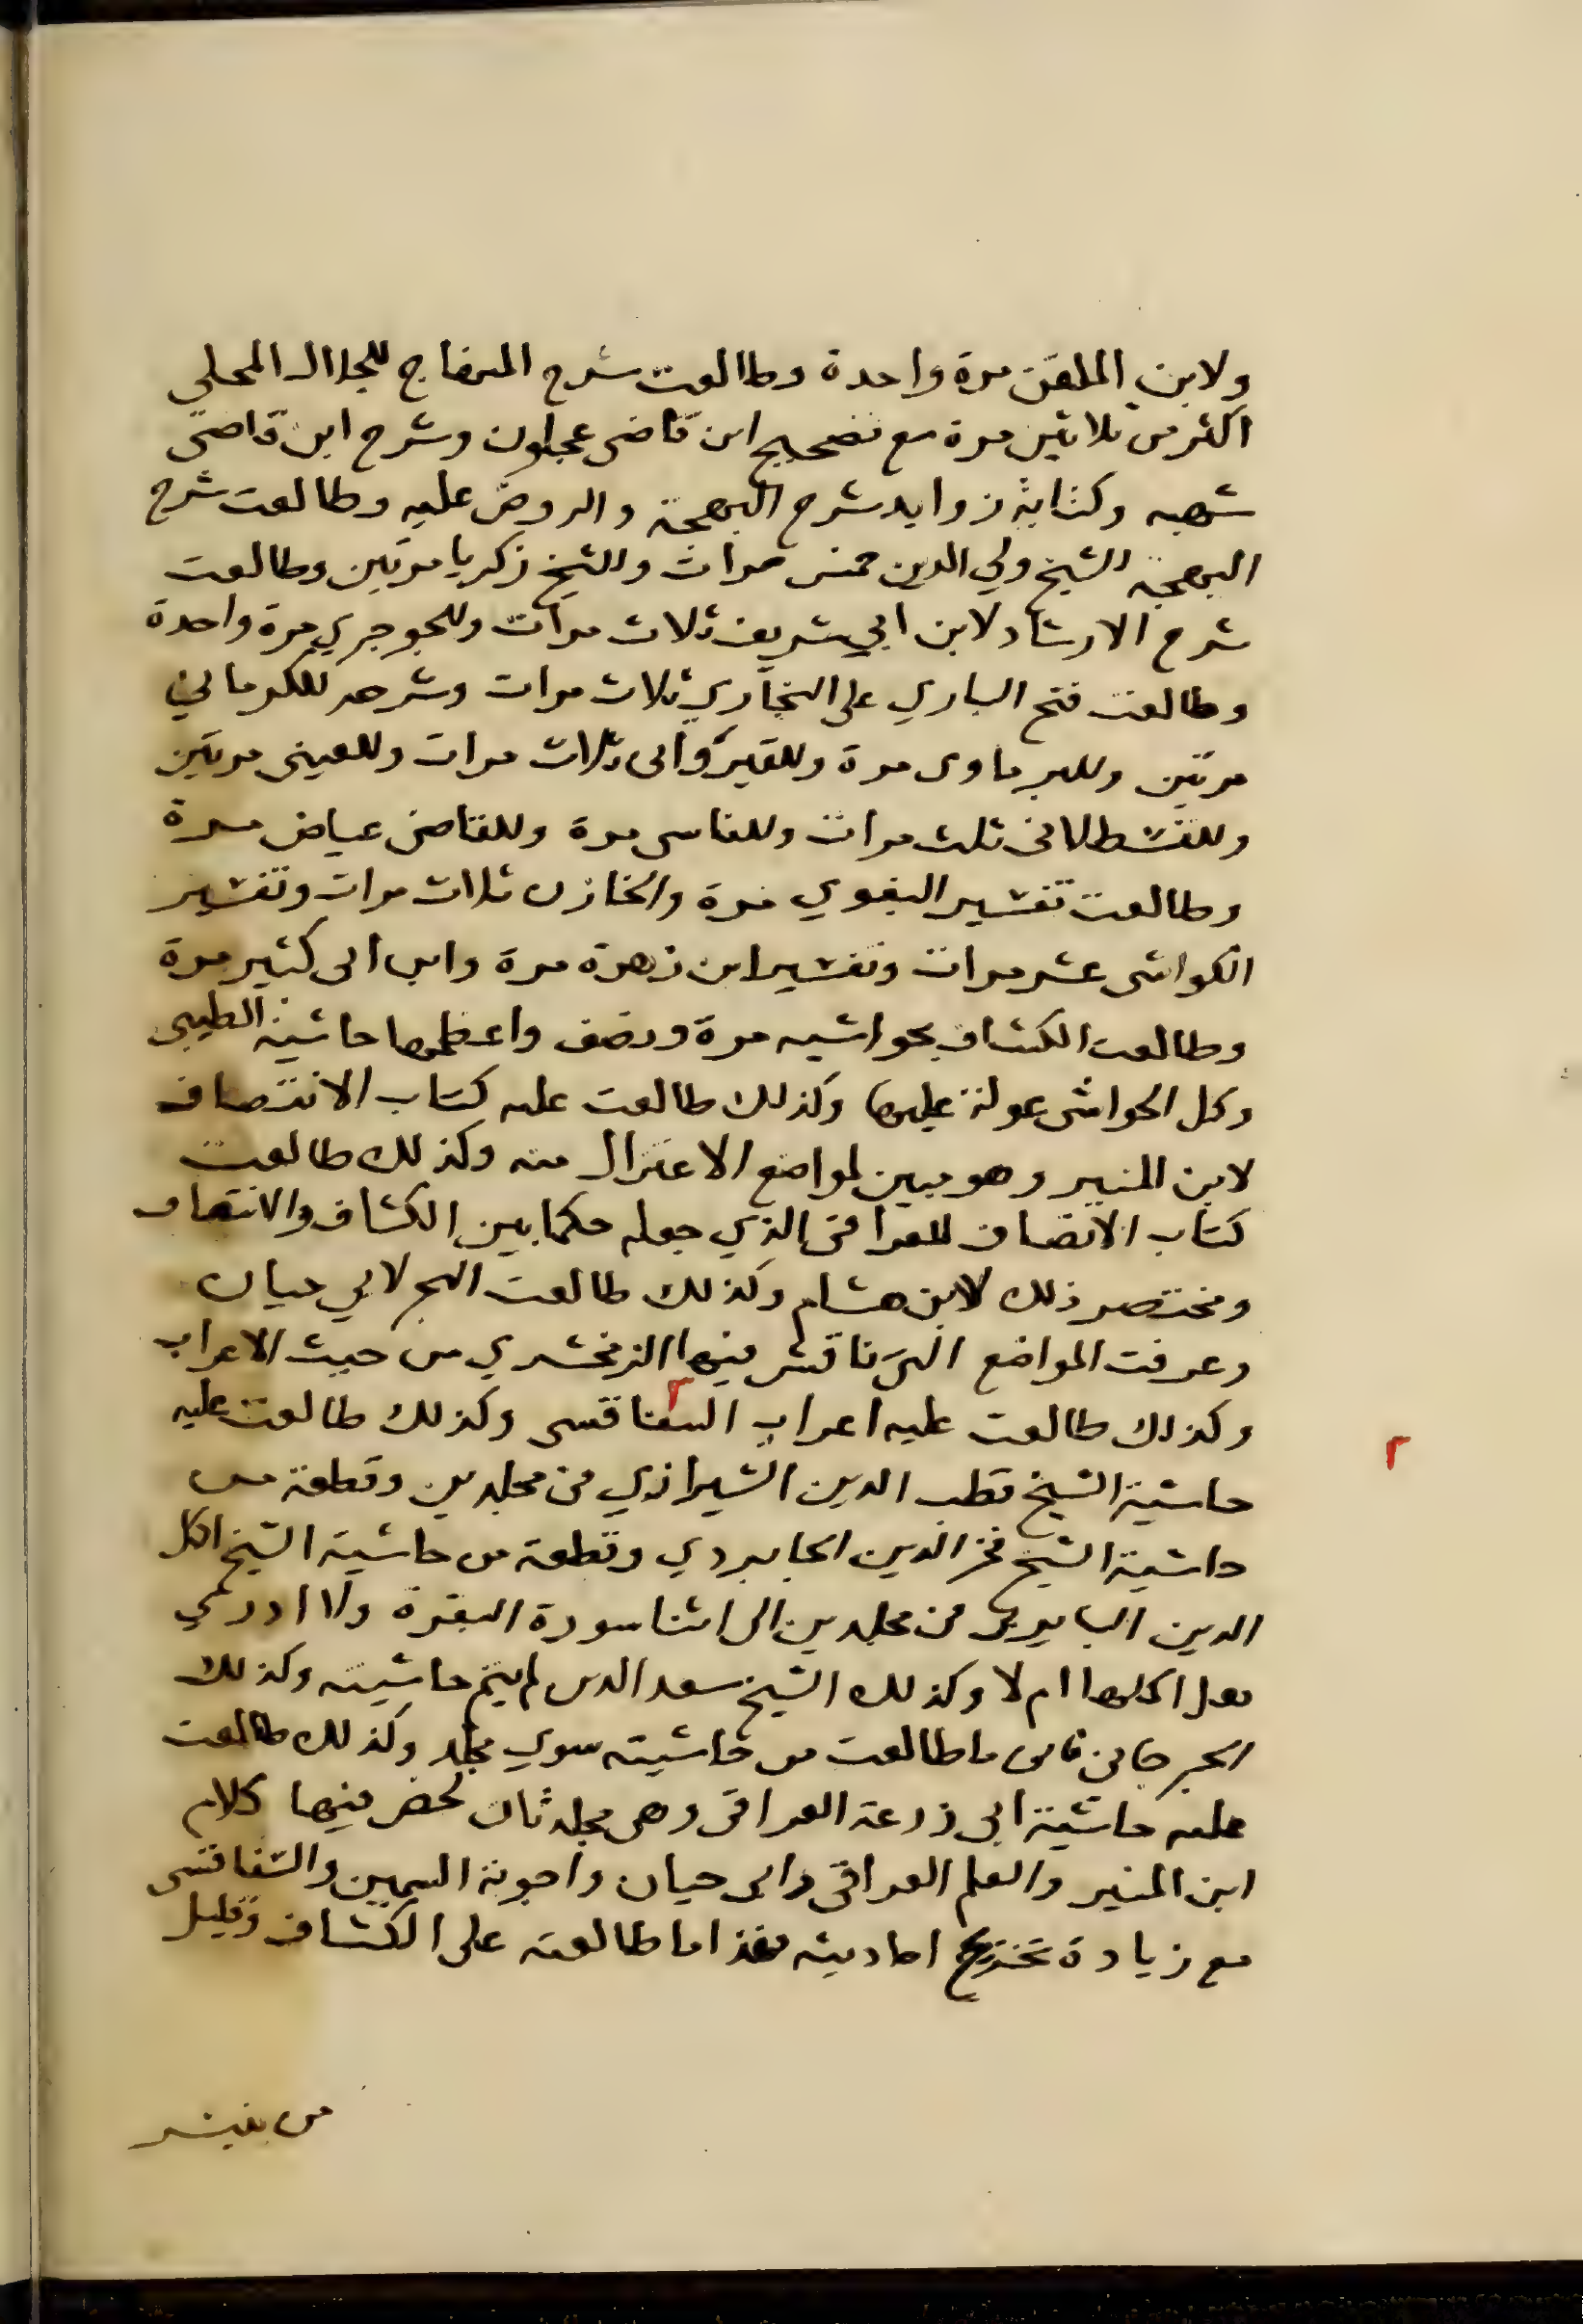 ولابن الملقن مرة واحدة وطالعت شرح المنهاج للجلال المحلى
اكثر من ثلاثين مرة مع تصحيح ابن قاضى عجلون وشرح ابن قاضى
شهبه وكتابة زوايد شرح البهجة والروض عليه وطالعت شرح
البهجة الشيخ ولي الدين خمس مرات والشيخ زكريا مرتين وطالعت
شرح الارشاد لابن ابي شريف ثلاث مرات وللجوجري مرة واحدة
وطالعت فتح الباري على البخاري ثلاث مرات وشرحه للكرماني
مرتين وللبرماوى مرة وللقيروانى ثلاث مرات وللعينى مرتين
وللقسطلانى ثلث مرات وللفاسى مرة وللقاضى عياض مرة
وطالعت تفسير البغوي مرة والخازن ثلاث مرات وتفسير
الكواشى عشر مرات وتفسير ابن زهرة مرة وابن ابى كثير مرة
وطالعت الكشاف بحواشيه مرة ونصف واعظمها حاشية الطيبى
وكل الحواشى عولة عليها وكذلك طالعت عليه كتاب الانتصاف
لابن المنير وهو مبين لمواضع الاعتزال منه وكذلك طالعت
كتاب الانصاف للعراقى الذي جعله حكما بين الكشاف والانتصاف
ومختصر ذلك لابن هشام وكذلك طالعت البحر لابي حيان
وعرفت المواضع التى ناقش فيها الزمخشري من حيث الاعراب
وكذلك طالعت عليه اعراب السفاقسى وكذلك طالعت عليه
حاشية الشيخ قطب الدين الشيرازي فى مجلدين وقطعة من
حاشية الشيخ فخر الدين الجاربردي وقطعة من حاشية الشيخ اكمل
الدين البابرتى فى مجلدين الى اثنا سورة البقرة ولا ادري
هل اكملها ام لا وكذلك الشيخ سعد الدين لم يتم حاشيته وكذلك
الجرجانى فانى ما طالعت من حاشيته سوي مجلد وكذلك طالعت
عليه حاشية ابى زرعة العراقى وهى مجلدتان لخص فيها كلام
ابن المنير والعلم العراقى وابى حيان واجوبة السمين والسفاقسى
مع زيادة تخريج احاديثه فهذا ما طالعته على الكشاف وقليل
من يفسر
٢
٢